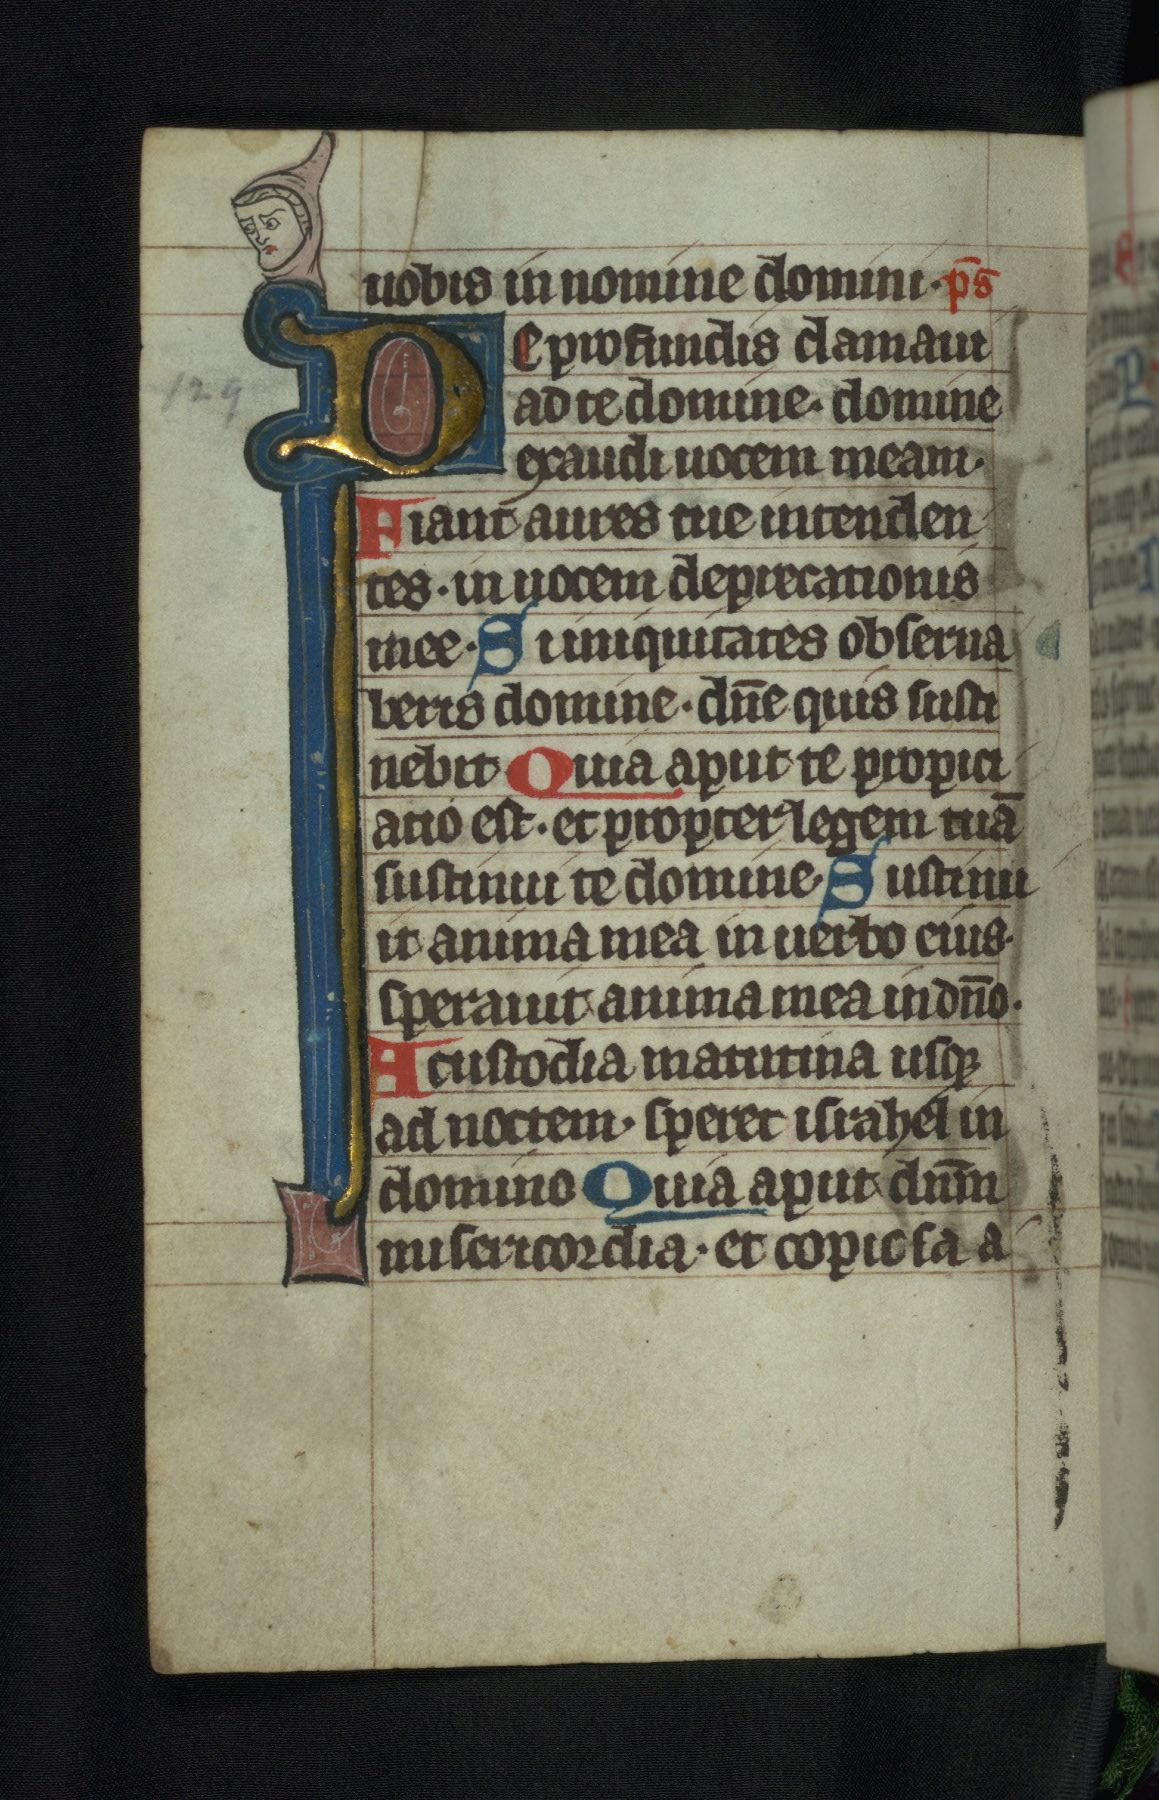 uobis in nomine domini · p̄s
De profundis clamaui
ad te domine · domine
exaudi uocem meam ·
Fiant aures tue intenden
tes · in uocem deprecationis
mee · Si iniquitates obserua
ueris domine · dn̄e quis susti
nebit Quia aput te propici
atio est · et propter legem tuā
sustinui te domine · Sustinu
it anima mea in uerbo eius ·
sperauit anima mea in dn̄o ·
A custodia matutina usqꝫ
ad noctem · speret israhel in
domino Quia aput dn̄m
misericordia · et copiosa a
129